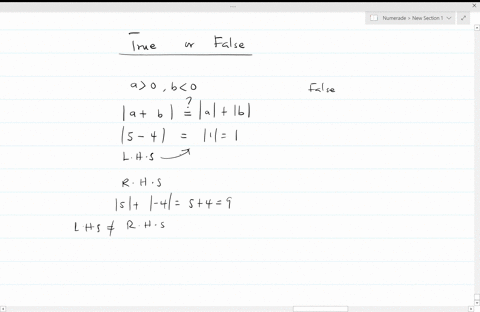 Numerade > New Section 1
True or False
a>0, b<0 False
|a + b| ≟ |a| + |b|
|5 - 4| = |1| = 1
L.H.S
R.H.S
|5| + |-4| = 5+4 = 9
L.H.S ≠ R.H.S